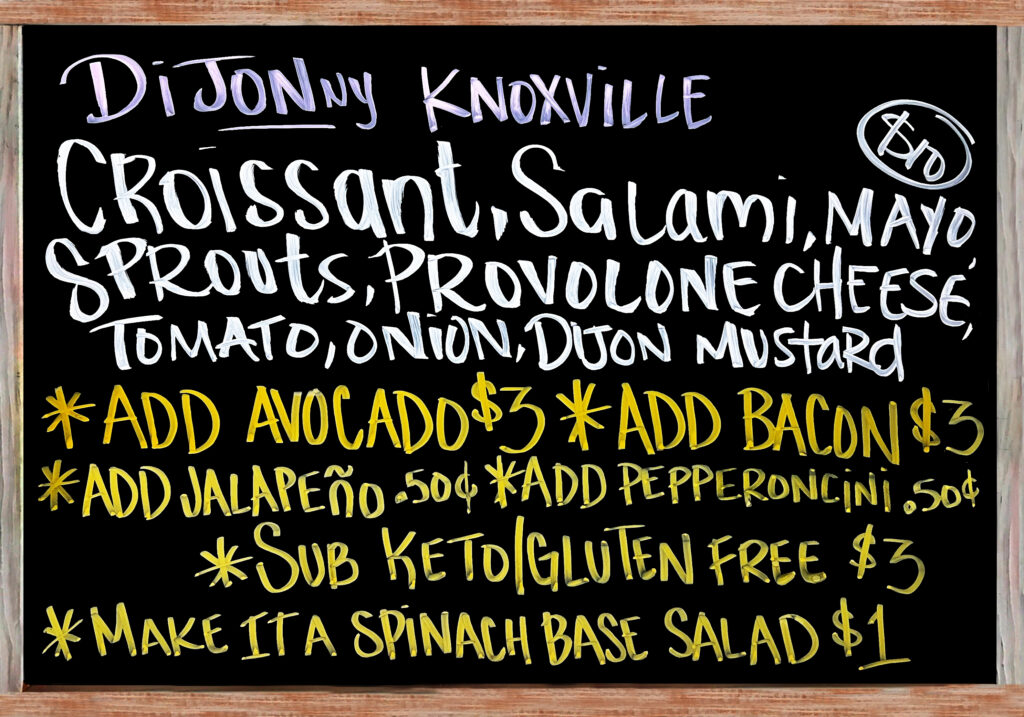 DiJONNY KNOXVILLE
$10
CROissant, Salami, MAYO,
SPROUts, PROVOLONE CHEESE,
TOMATO, ONION, DIJON MUStaRd
*ADD AVOCADO $3 *ADD BACON $3
*ADD JALAPEÑO .50¢ *ADD PEPPERONCINI .50¢
*SUB KETO/GLUTEN FREE $3
*MAKE IT A SPINACH BASE SALAD $1